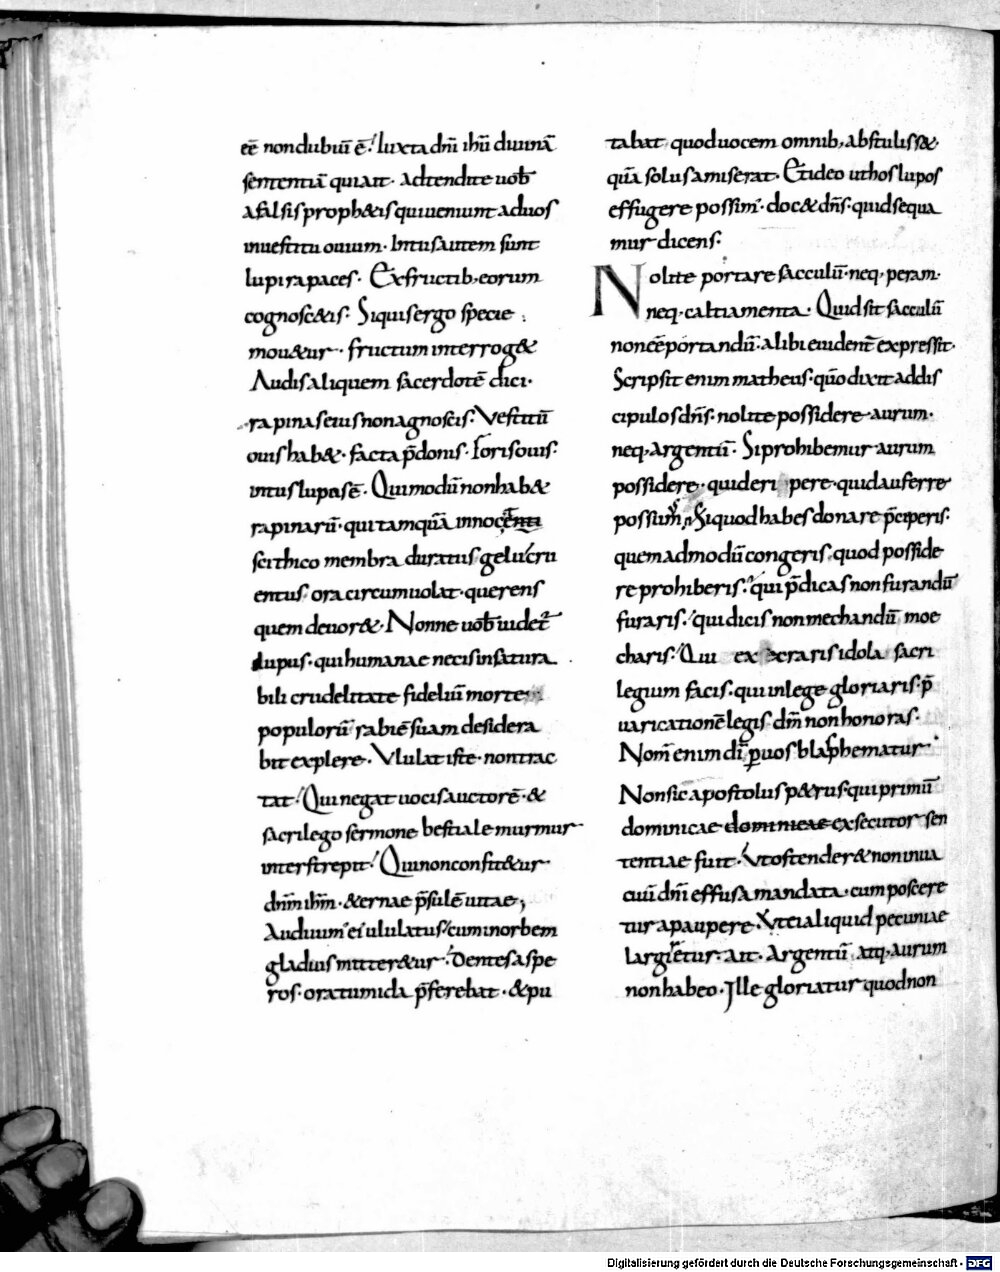 eē non dubiū ē. luxta dn̄i ihū diuinā
sententiā qui ait. Adtendite uob̄
a falsis proph&is qui ueniunt ad uos
in uestitu ouium. Intus autem sunt
lupi rapaces. Ex fructib; eorum
cognosc&is. Si quis ergo specie
mou&ur. fructum interrog&
Audis aliquem sacerdotē dici.
rapinas eius non agnoscis. Vestitū
ouis hab&. facta p̄donis. Foris ouis.
intus lupus ē. Qui modū non hab&
rapinarū. qui tamquā
scithico membra duratus gelu cru
entus ora circumuolat. querens
quem deuor&. Nonne uob̄ uidet̄
lupus. qui humanae necis insatura
bili crudelitate fideliū morte
populorū rabiē suam desidera
bit explere. Vlulat iste. non trac
tat. Qui negat uocis auctorē. &
sacrilego sermone bestiale murmur
interstrepit. Qui non confit&ur
dn̄m ihm̄. &ernae p̄sulē uitae;
Audiuim' ei' ululatus. cum in orbem
gladius mitter&ur. Dentes aspe
ros. ora tumida p̄ferebat. & pu
tabat quod uocem omnib; abstuliss&.
quā solus amiserat. Et ideo ut hos lupos
effugere possim'. doc& dn̄s. quid sequa
mur dicens.
Nolite portare sacculū. neq; peram.
neq; caltiamenta. Quid sit sacculū
non eē portandū. alibi euident̄ expressit.
Scripsit enim matheus. quō dixit addis
cipulos dn̄s. nolite possidere aurum.
neq; Argentū. Si prohibemur aurum
possidere. quid eripere. quid auferre
possum'. Si quod habes donare p̄ciperis.
quemadmodū congeris. quod posside
re prohiberis. qui p̄dicas non furandū
furaris. qui dicis non mechandū moe
charis. Qui execraris idola sacri
legium facis. qui in lege gloriaris. p̄
uaricationē legis dm̄ non honoras.
Nom̄ enim di ꝑ uos blasphematur.
Non sic apostolus p&rus. qui primū
dominicae dominicae exsecutor sen
tentiae fuit. Vt ostender& non in ua
cuū dn̄i effusa mandata. cum poscere
tur a paupere. Vt ei aliquid pecuniae
largiretur. ait. Argentū atq; aurum
non habeo. Ille gloriatur quod non
Digitalisierung gefördert durch die Deutsche Forschungsgemeinschaft - DFG